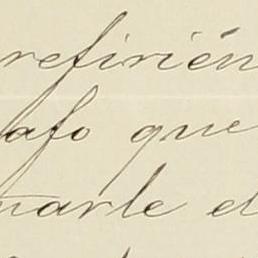 refirién
afo que
narle el